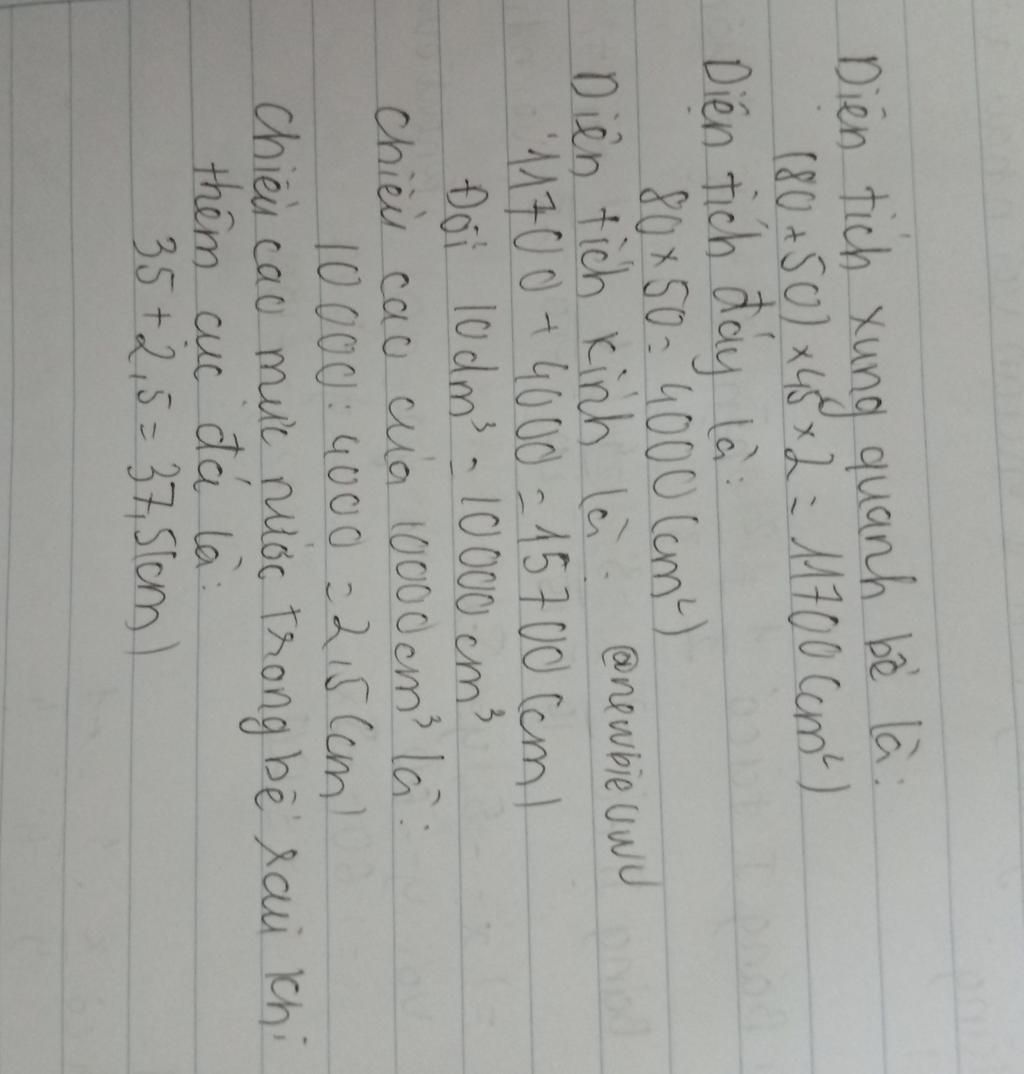 Diện tích xung quanh bể là:
(80 + 50) × 45 × 2 = 11700 (cm²)
Diện tích đáy là:
80 × 50 = 4000 (cm²)
Diện tích kính là: @newbieuwu
11700 + 4000 = 15700 (cm)
Đổi 10dm³ = 10000 cm³
Chiều cao của 10000cm³ là:
10000 : 4000 = 2,5 (cm)
Chiều cao mực nước trong bể xau khi
thêm cục đá là:
35 + 2,5 = 37,5 (cm)